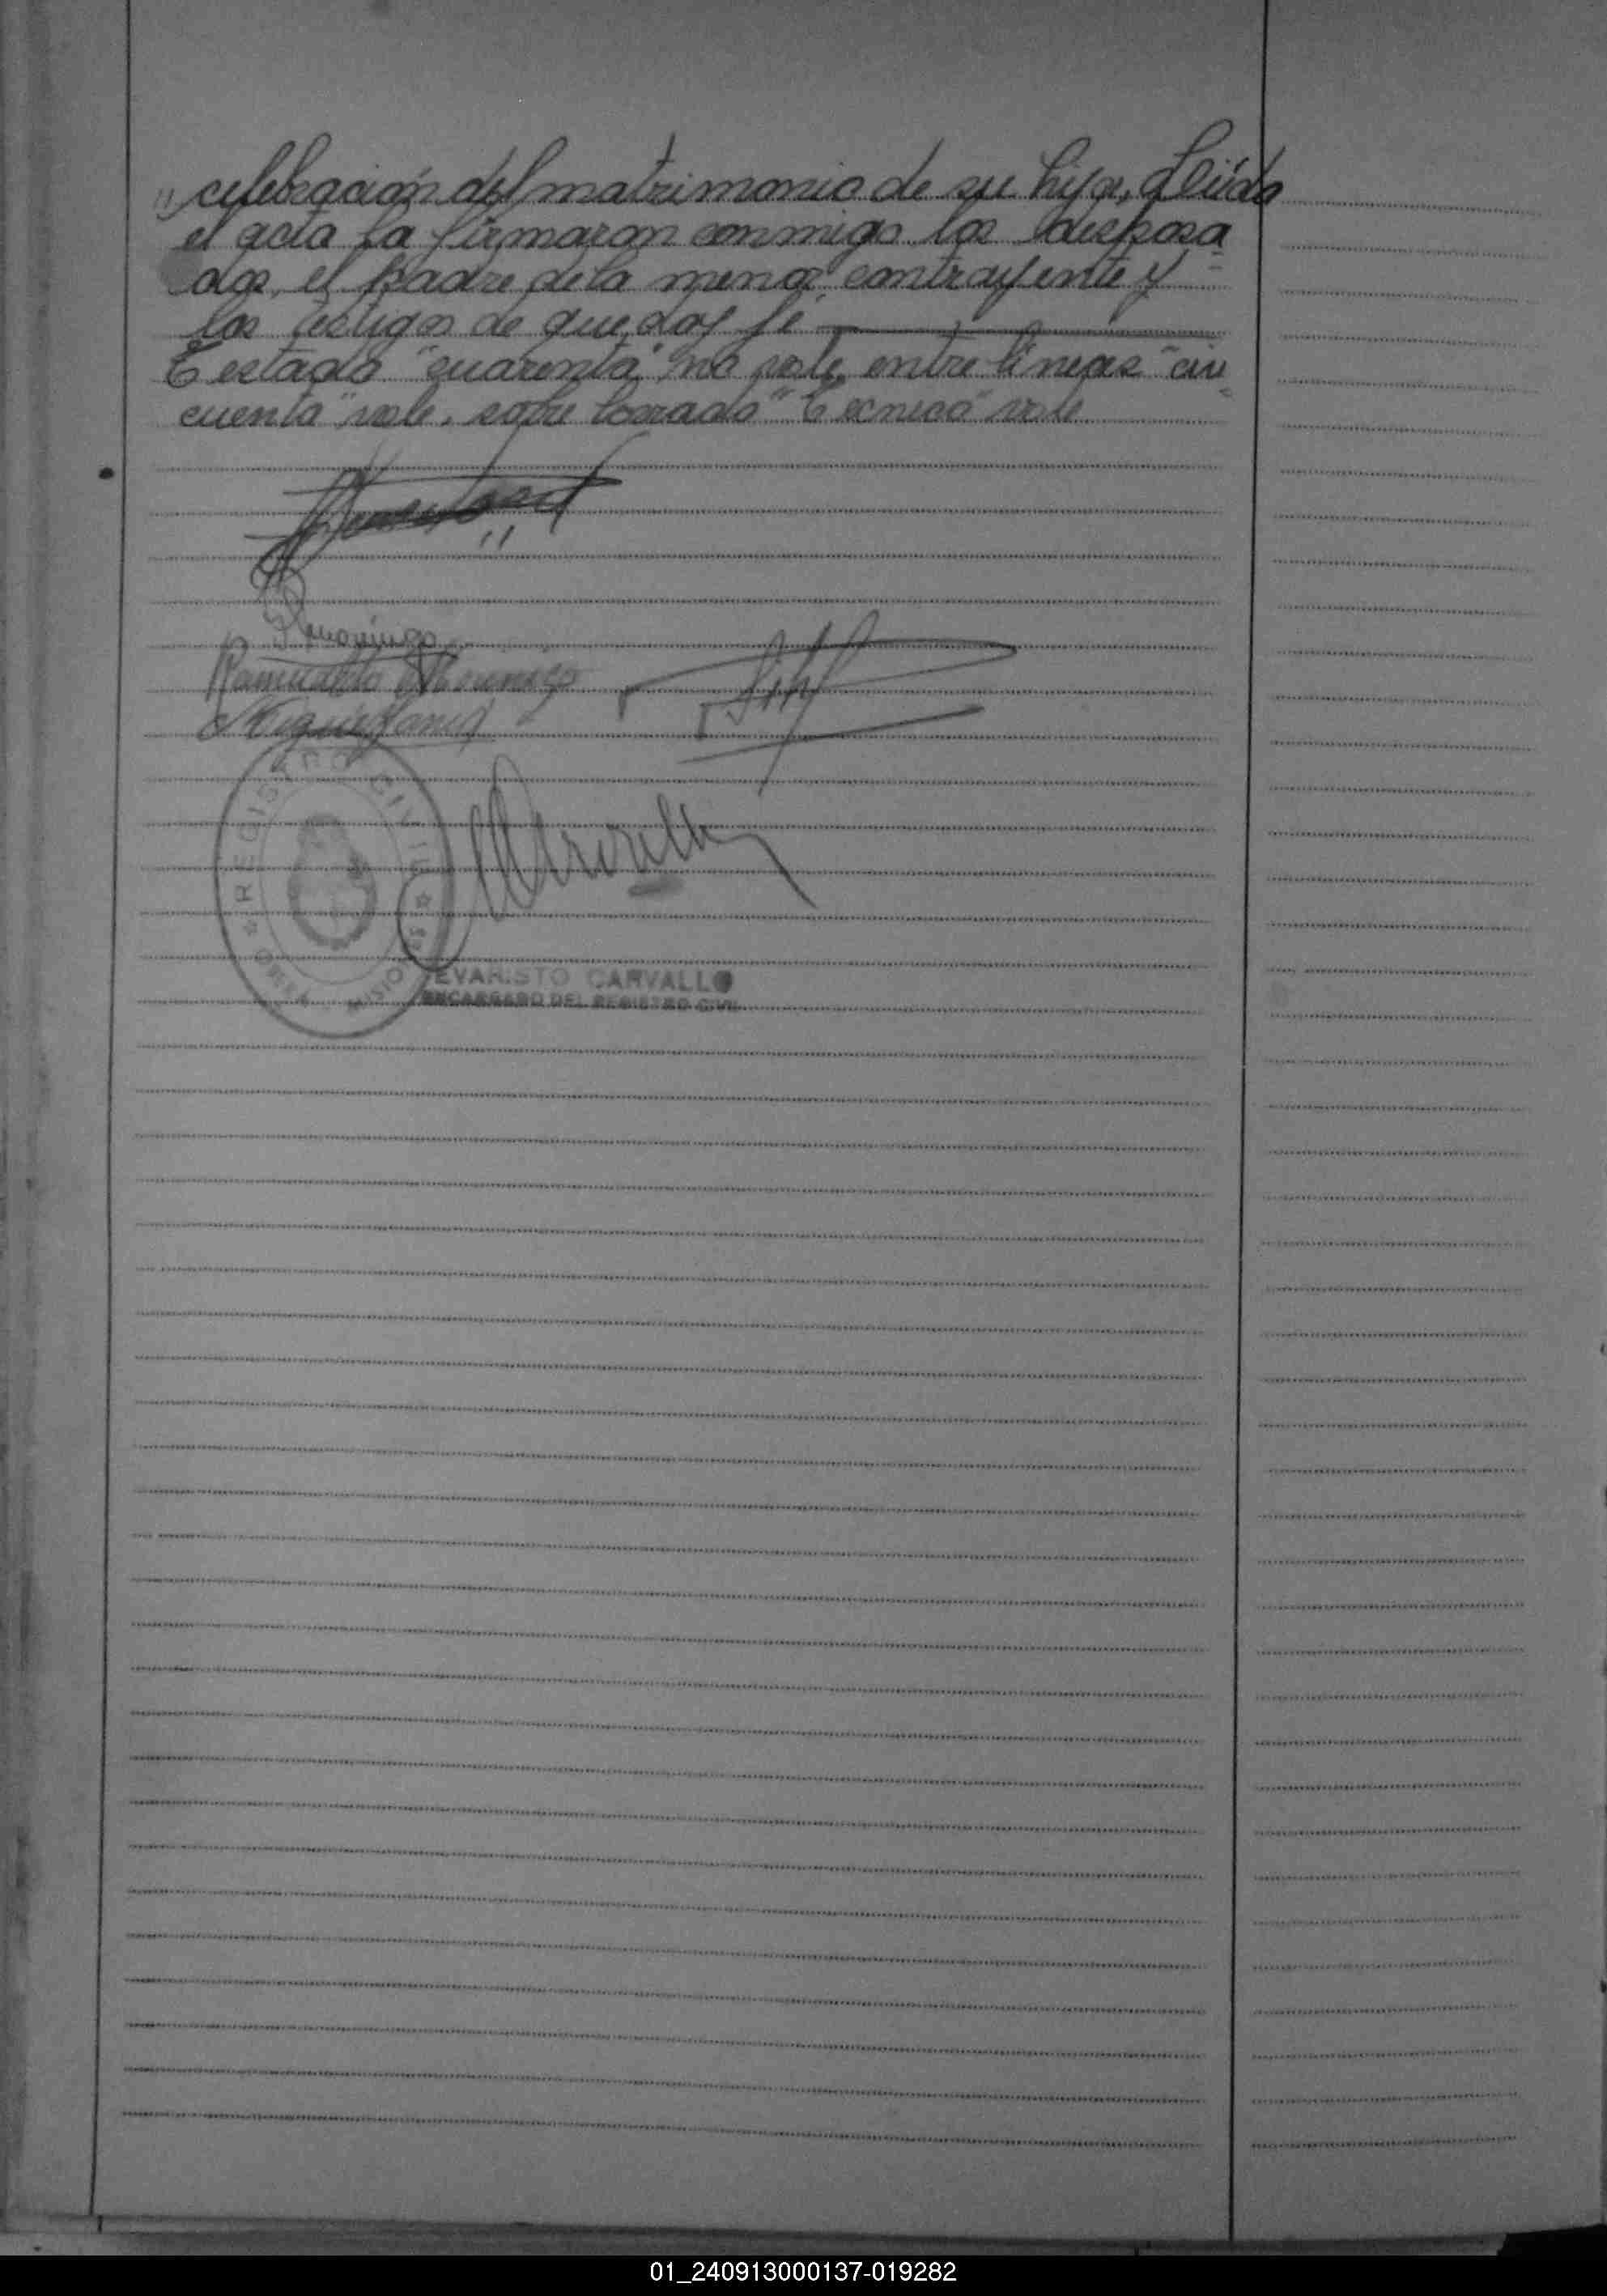 " celebración del matrimonio de su hija, Leída
el acta la firmaron conmigo los desposa
dos, el padre de la menor contrayente y
los testigos de que doy fe
Testado "cuarenta" no vale, entre lineas "cin
cuenta" vale, sobre borrado "Tecnico" vale
Romualdo
REGISTRO CIVIL
EVARISTO CARVALLO
ENCARGADO DEL REGISTRO CIVIL
01_240913000137-019282